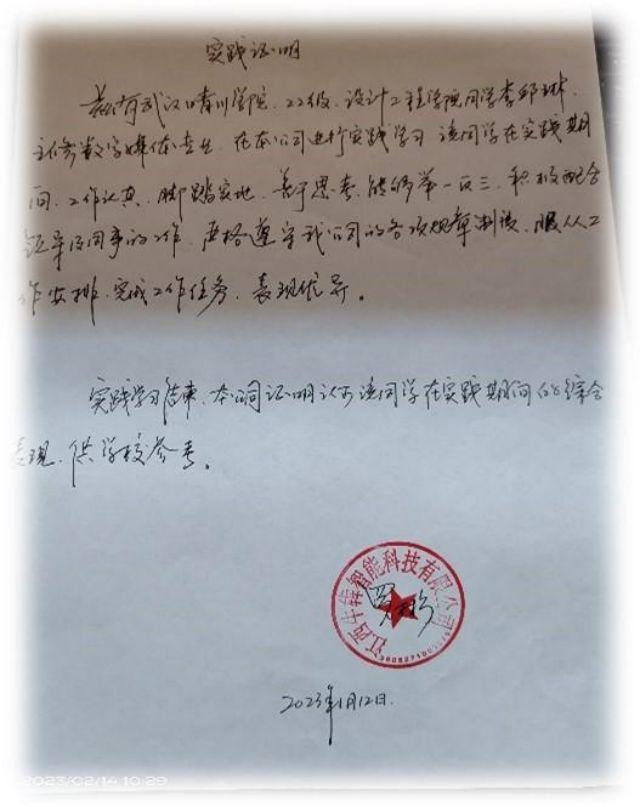 实践证明
兹有武汉晴川学院、22级、设计工程学院同学李邱琳、
主修数字媒体专业、在本公司进行实践学习 该同学在实践期
间、工作认真、脚踏实地、善于思考、能够举一反三、积极配合
领导及同事的工作、严格遵守我公司的各项规章制度、服从工
作安排、完成工作任务、表现优异。
实践学习结束、本公司证明认可该同学在实践期间的综合
表现、供学校参考。
江西牛犇智能科技有限公司
2023年1月12日.
2023/02/14 10:29